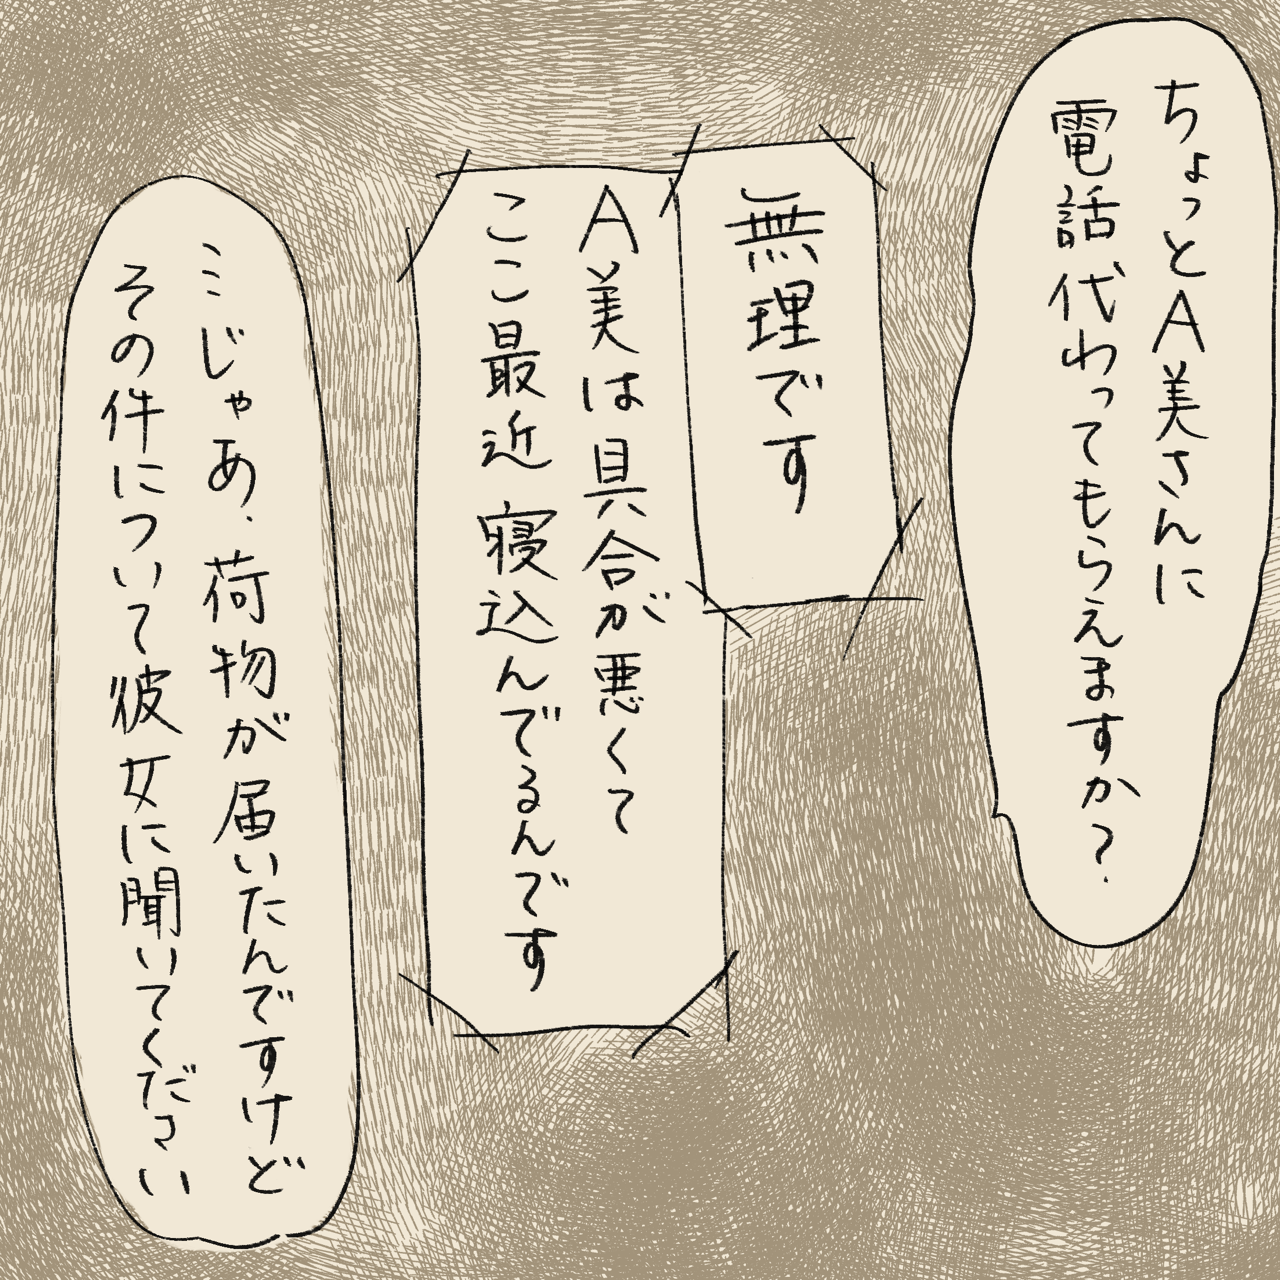 ちょっとA美さんに
電話代わってもらえますか?
無理です
A美は具合が悪くて
ここ最近寝込んでるんです
…じゃあ、荷物が届いたんですけど
その件について彼女に聞いてください